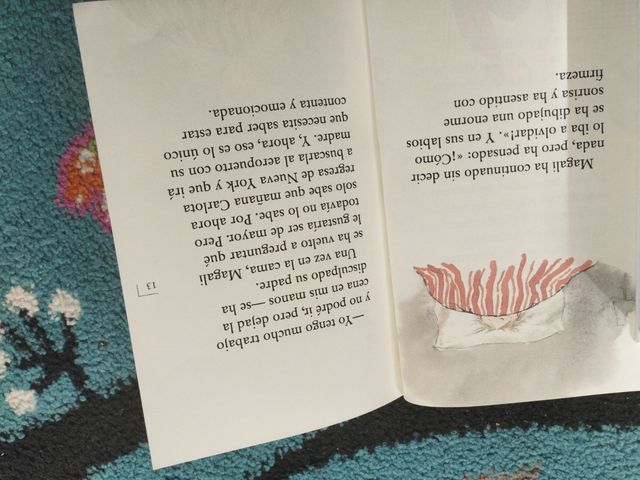 Magali ha continuado sin decir
nada, pero ha pensado: «¡Cómo
lo iba a olvidar!». Y en sus labios
se ha dibujado una enorme
sonrisa y ha asentido con
firmeza.
13
—Yo tengo mucho trabajo
y no podré ir, pero dejad la
cena en mis manos —se ha
disculpado su padre.
Una vez en la cama, Magali
se ha vuelto a preguntar qué
le gustaría ser de mayor. Pero
todavía no lo sabe. Por ahora
solo sabe que mañana Carlota
regresa de Nueva York y que irá
a buscarla al aeropuerto con su
madre. Y, ahora, eso es lo único
que necesita saber para estar
contenta y emocionada.